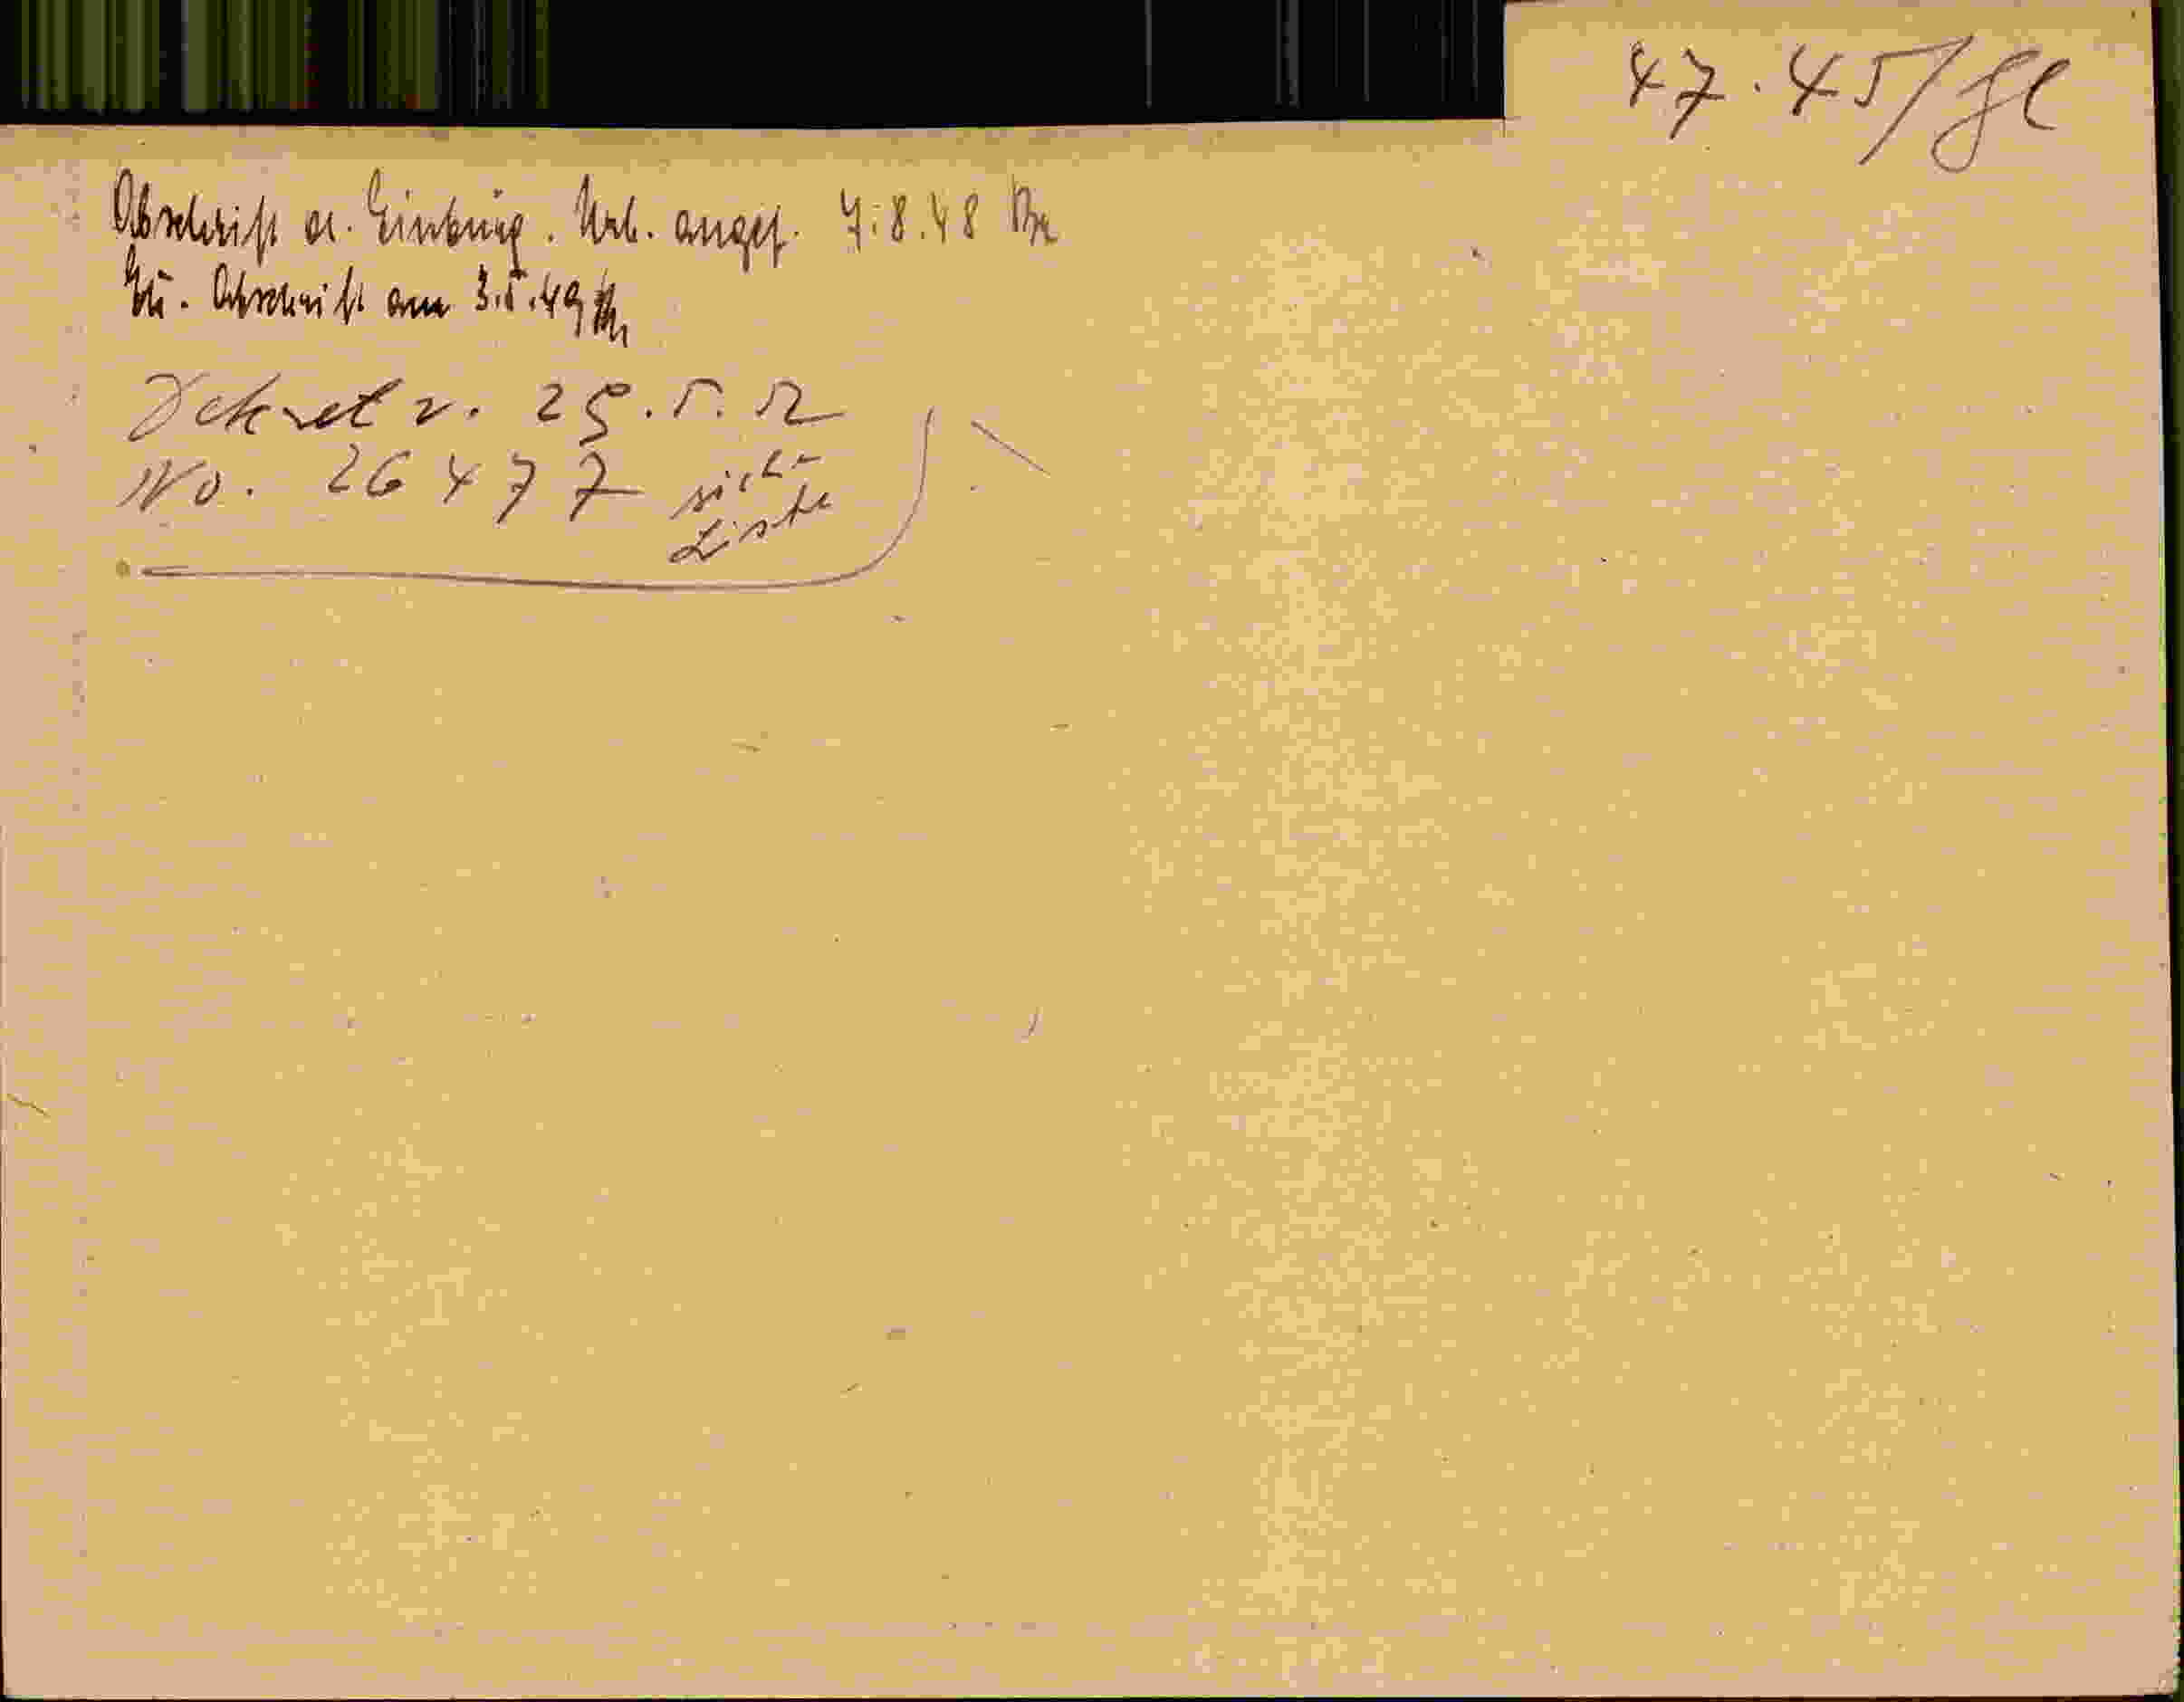 47.45/gl
Abschrift a. Einbürg. Urk. angef. 7.8.48 Br
Abschrift am 3.5.49
Dekret v. 25.5.52
No. 26477 siehe
Liste